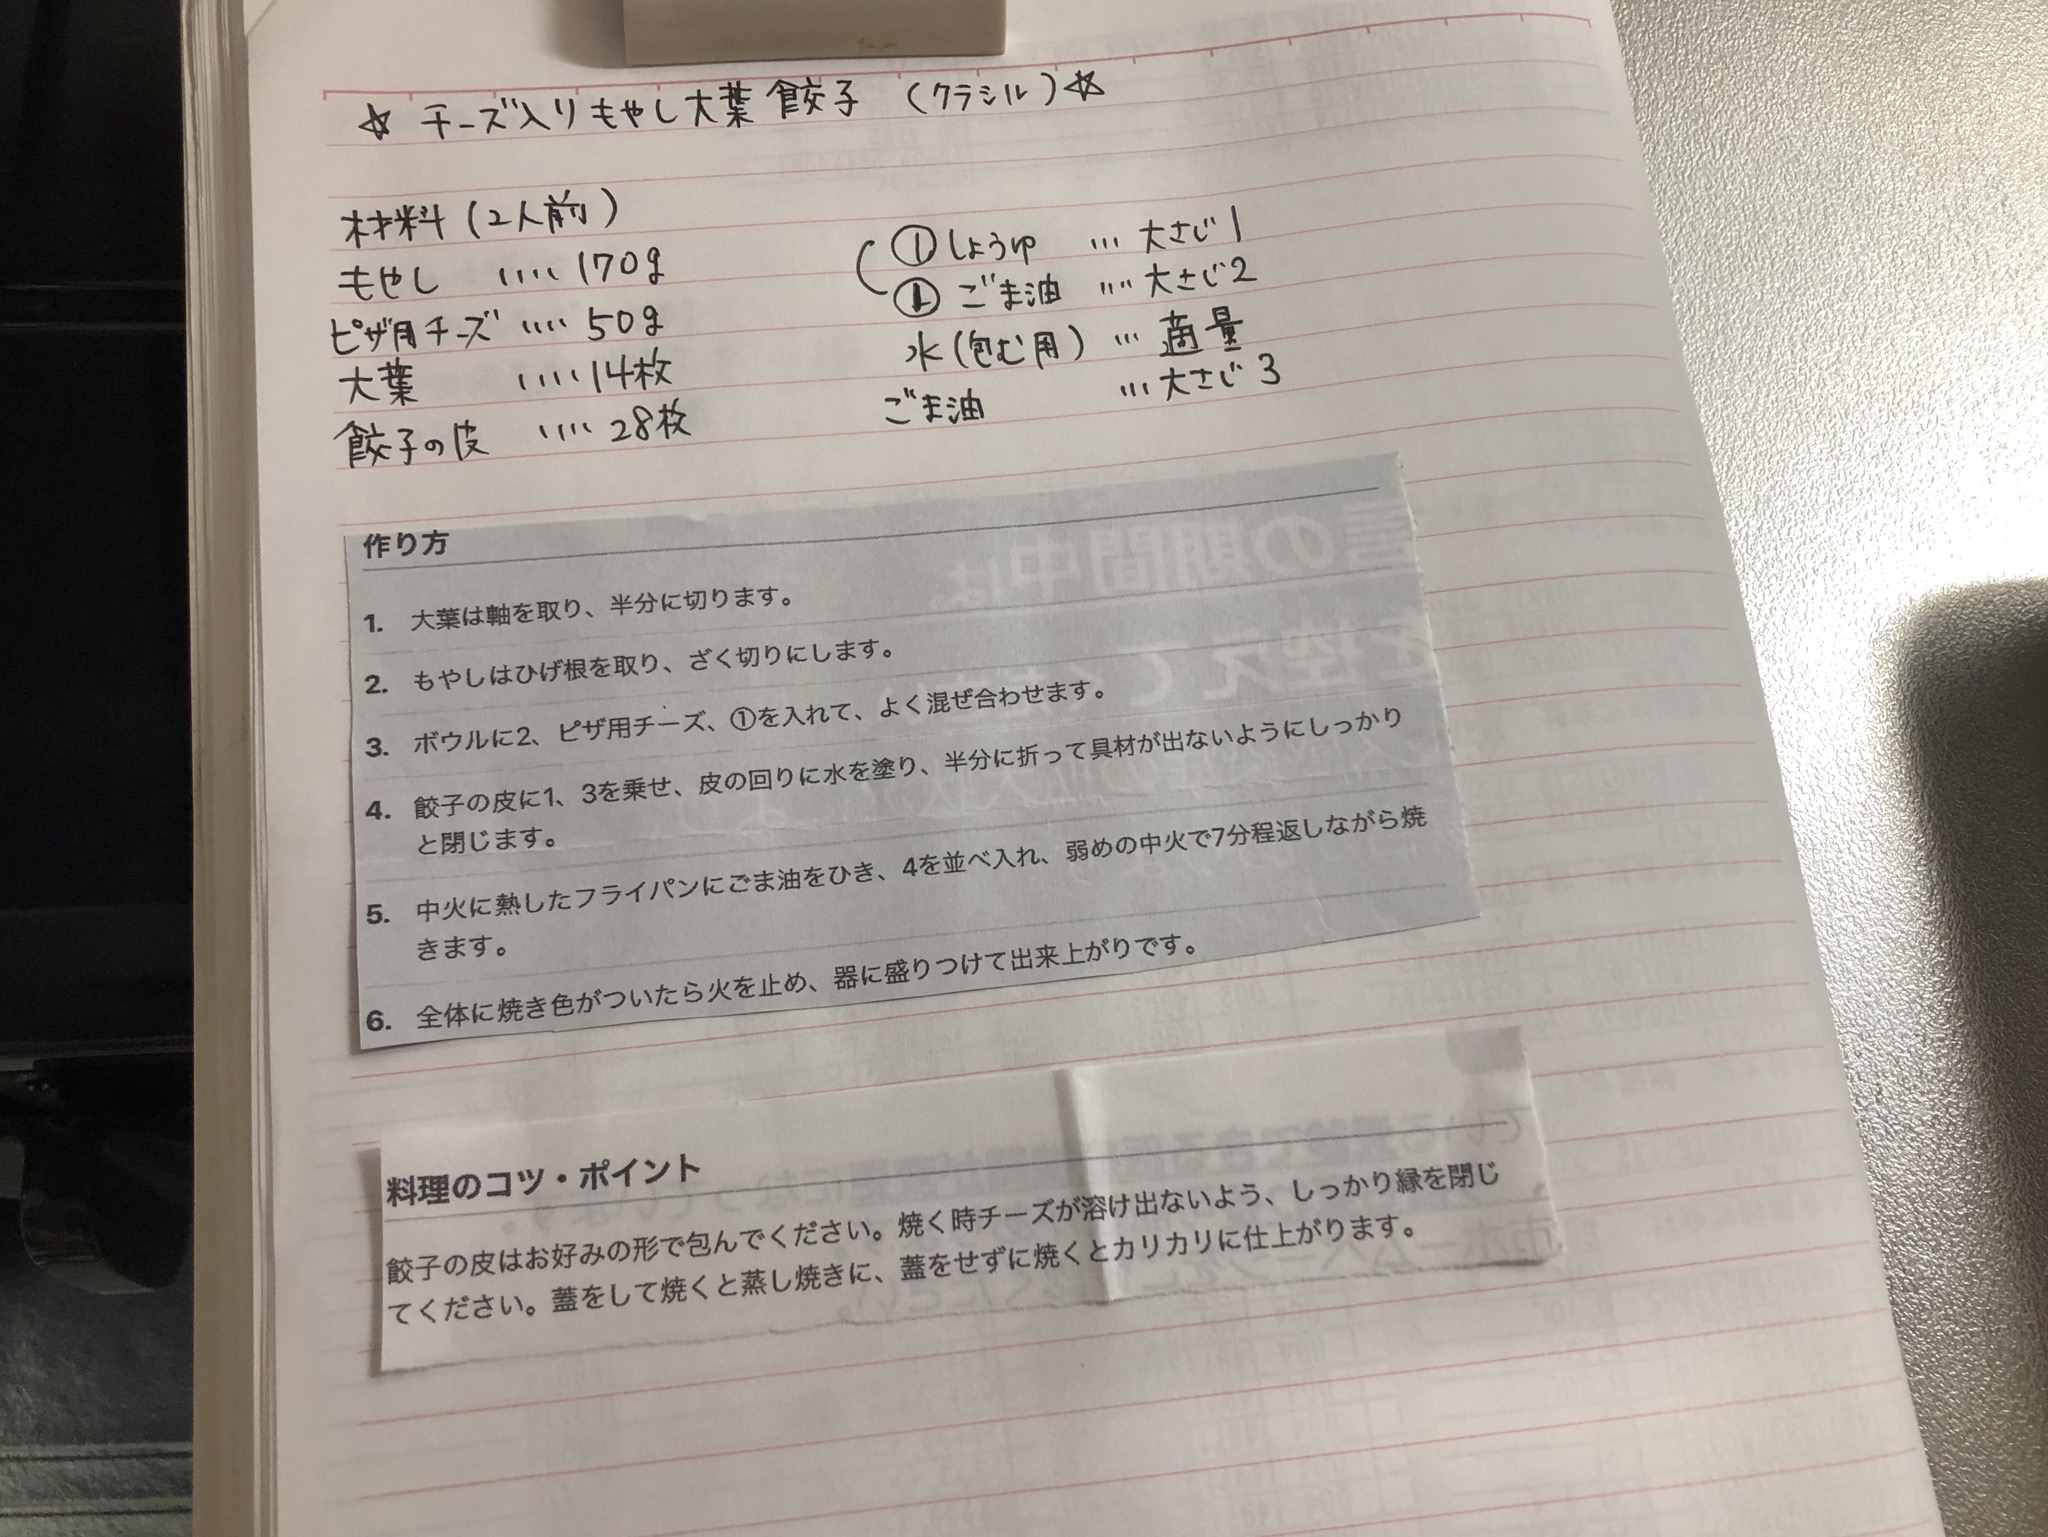 ☆ チーズ入りもやし大葉餃子 (クラシル)☆
材料(2人前)
もやし ‥‥170g
ピザ用チーズ ‥‥ 50g
大葉 ‥‥14枚
餃子の皮 ‥‥ 28枚
①しょうゆ … 大さじ1
① ごま油 ‥‥ 大さじ2
水(包む用) … 適量
ごま油 … 大さじ3
作り方
1. 大葉は軸を取り、半分に切ります。
2. もやしはひげ根を取り、ざく切りにします。
3. ボウルに2、ピザ用チーズ、①を入れて、よく混ぜ合わせます。
4. 餃子の皮に1、3を乗せ、皮の回りに水を塗り、半分に折って具材が出ないようにしっかり
と閉じます。
5. 中火に熱したフライパンにごま油をひき、4を並べ入れ、弱めの中火で7分程返しながら焼
きます。
6. 全体に焼き色がついたら火を止め、器に盛りつけて出来上がりです。
料理のコツ・ポイント
餃子の皮はお好みの形で包んでください。焼く時チーズが溶け出ないよう、しっかり縁を閉じ
てください。蓋をして焼くと蒸し焼きに、蓋をせずに焼くとカリカリに仕上がります。